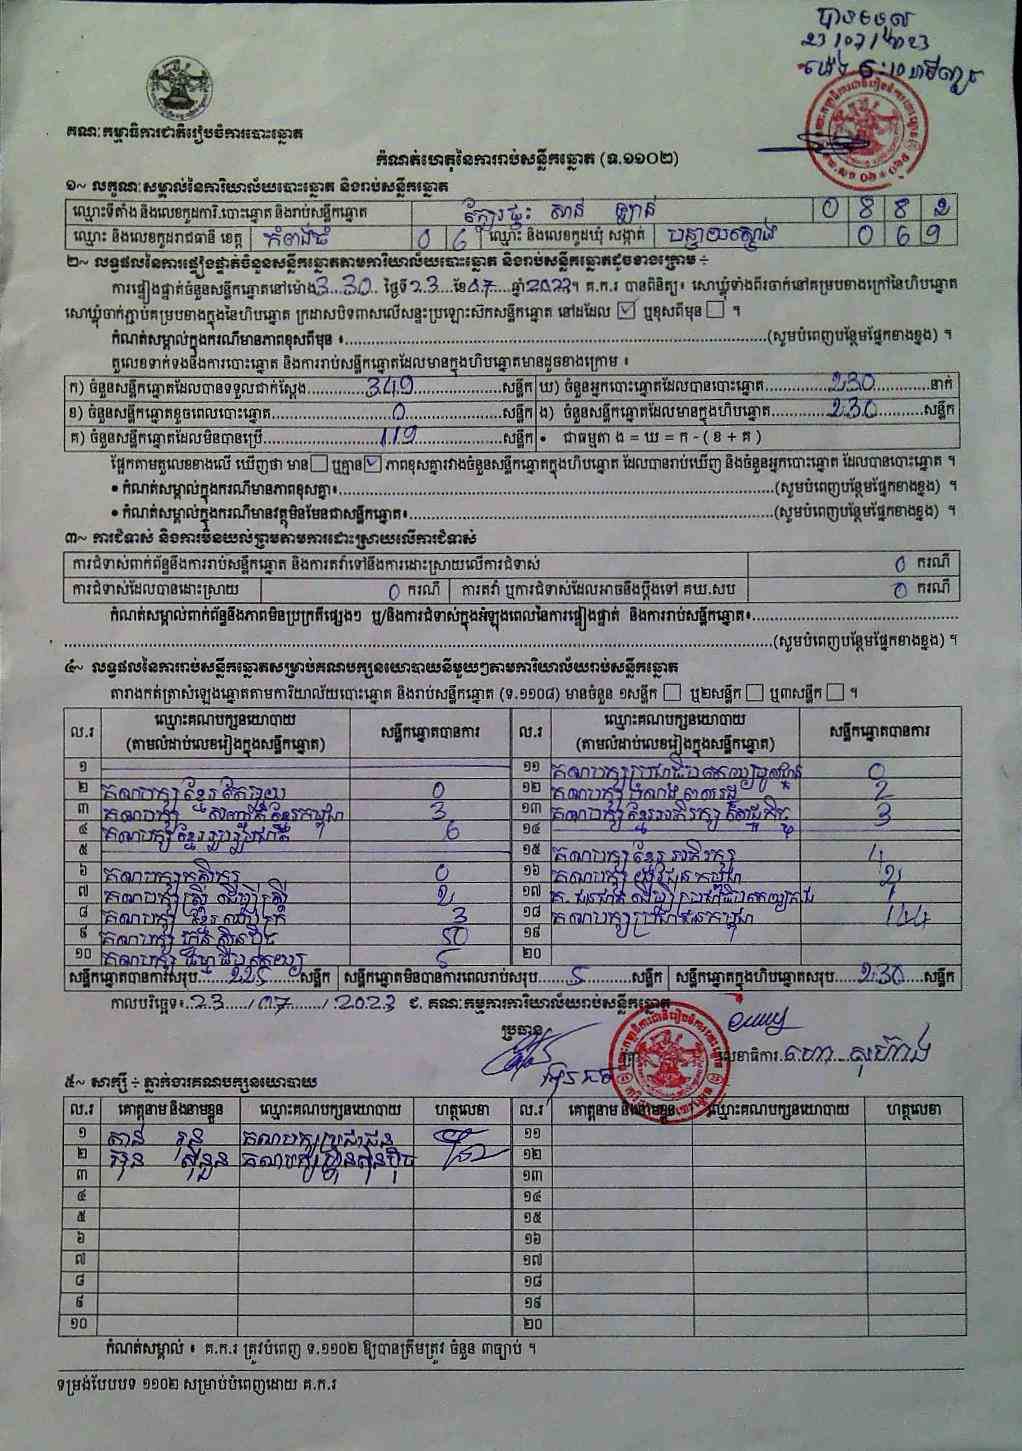 បានចូល
23/07/2023
គណៈកម្មាធិការជាតិរៀបចំការបោះឆ្នោត
កំណត់ហេតុនៃការរាប់សន្លឹកឆ្នោត (ទ.១១០២)
១~ លក្ខណៈសម្គាល់នៃការិយាល័យបោះឆ្នោត និងរាប់សន្លឹកឆ្នោត
ឈ្មោះទីតាំង និងលេខកូដការិ.បោះឆ្នោត និងរាប់សន្លឹកឆ្នោត 0 8 8 2
ឈ្មោះ និងលេខកូដរាជធានី ខេត្ត កំពង់ធំ 0 6 ឈ្មោះ និងលេខកូដឃុំ សង្កាត់ 0 6 9
២~ លទ្ធផលនៃការផ្ទៀងផ្ទាត់ចំនួនសន្លឹកឆ្នោតតាមការិយាល័យបោះឆ្នោត និងរាប់សន្លឹកឆ្នោតដូចខាងក្រោម ÷
ការផ្ទៀងផ្ទាត់ចំនួនសន្លឹកឆ្នោតនៅម៉ោង 3:30 ថ្ងៃទី 23 ខែ 07 ឆ្នាំ 2023។ គ.ក.រ បានពិនិត្យ៖ សោឃ្លុំទាំងពីរចាក់នៅគម្របខាងក្រៅនៃហិបឆ្នោត
សោឃ្លុំចាក់ភ្ជាប់គម្របខាងក្នុងនៃហិបឆ្នោត ក្រដាសបិទពាសលើសន្ទះប្រឡោះស៊កសន្លឹកឆ្នោត នៅដដែល ☑ ឬខុសពីមុន ☐ ។
កំណត់សម្គាល់ក្នុងករណីមានភាពខុសពីមុន ៖ (សូមបំពេញបន្ថែមផ្នែកខាងខ្នង) ។
តួលេខទាក់ទងនឹងការបោះឆ្នោត និងការរាប់សន្លឹកឆ្នោតដែលមានក្នុងហិបឆ្នោតមានដូចខាងក្រោម ៖
ក) ចំនួនសន្លឹកឆ្នោតដែលបានទទួលជាក់ស្តែង 349 សន្លឹក ឃ) ចំនួនអ្នកបោះឆ្នោតដែលបានបោះឆ្នោត 230 នាក់
ខ) ចំនួនសន្លឹកឆ្នោតខូចពេលបោះឆ្នោត 0 សន្លឹក ង) ចំនួនសន្លឹកឆ្នោតដែលមានក្នុងហិបឆ្នោត 230 សន្លឹក
គ) ចំនួនសន្លឹកឆ្នោតដែលមិនបានប្រើ 119 សន្លឹក • ជាធម្មតា ង = ឃ = ក - ( ខ + គ )
ផ្អែកតាមតួលេខខាងលើ ឃើញថា មាន ☐ ឬគ្មាន ☑ ភាពខុសគ្នារវាងចំនួនសន្លឹកឆ្នោតក្នុងហិបឆ្នោត ដែលបានរាប់ឃើញ និងចំនួនអ្នកបោះឆ្នោត ដែលបានបោះឆ្នោត ។
• កំណត់សម្គាល់ក្នុងករណីមានភាពខុសគ្នា៖ (សូមបំពេញបន្ថែមផ្នែកខាងខ្នង) ។
• កំណត់សម្គាល់ក្នុងករណីមានវត្ថុមិនមែនជាសន្លឹកឆ្នោត៖ (សូមបំពេញបន្ថែមផ្នែកខាងខ្នង) ។
៣~ ការជំទាស់ និងការមិនយល់ព្រមតាមការដោះស្រាយលើការជំទាស់
ការជំទាស់ពាក់ព័ន្ធនឹងការរាប់សន្លឹកឆ្នោត និងការតវ៉ាទៅនឹងការដោះស្រាយលើការជំទាស់ 0 ករណី
ការជំទាស់ដែលបានដោះស្រាយ 0 ករណី ការតវ៉ា ឬការជំទាស់ដែលអាចនឹងប្តឹងទៅ គឃ.សប 0 ករណី
កំណត់សម្គាល់ពាក់ព័ន្ធនឹងភាពមិនប្រក្រតីផ្សេងៗ ឬ/និងការជំទាស់ក្នុងអំឡុងពេលនៃការផ្ទៀងផ្ទាត់ និងការរាប់សន្លឹកឆ្នោត៖
(សូមបំពេញបន្ថែមផ្នែកខាងខ្នង) ។
៤~ លទ្ធផលនៃការរាប់សន្លឹកឆ្នោតសម្រាប់គណបក្សនយោបាយនីមួយៗតាមការិយាល័យរាប់សន្លឹកឆ្នោត
តារាងកត់ត្រាសំឡេងឆ្នោតតាមការិយាល័យបោះឆ្នោត និងរាប់សន្លឹកឆ្នោត (ទ.១១០៨) មានចំនួន ១សន្លឹក ☐ ឬ២សន្លឹក ☐ ឬ៣សន្លឹក ☐ ។
ល.រ ឈ្មោះគណបក្សនយោបាយ (តាមលំដាប់លេខរៀងក្នុងសន្លឹកឆ្នោត) សន្លឹកឆ្នោតបានការ ល.រ ឈ្មោះគណបក្សនយោបាយ (តាមលំដាប់លេខរៀងក្នុងសន្លឹកឆ្នោត) សន្លឹកឆ្នោតបានការ
១ ១១ គណបក្សប្រជាធិបតេយ្យមូលដ្ឋាន 0
២ គណបក្សខ្មែរតែមួយ 0 ១២ គណបក្ស 2
៣ គណបក្ស សញ្ជាតិខ្មែរកម្ពុជា 3 ១៣ គណបក្សខ្មែរអភិរក្សសេដ្ឋកិច្ច 3
៤ គណបក្សខ្មែររួបរួមជាតិ 6 ១៤
៥ ១៥ គណបក្សខ្មែរ អភិរក្ស 4
៦ គណបក្សកសិករ 0 ១៦ គណបក្ស យុវជនកម្ពុជា 2
៧ គណបក្សស្ត្រី ដើម្បីស្ត្រី 2 ១៧ 1
៨ គណបក្ស ខ្មែរ ឈប់ក្រ 3 ១៨ គណបក្សប្រជាជនកម្ពុជា 144
៩ គណបក្ស ហ្វ៊ុនស៊ិនប៉ិច 50 ១៩
១០ គណបក្ស ធម្មាធិបតេយ្យ 5 ២០
សន្លឹកឆ្នោតបានការសរុប 225 សន្លឹក សន្លឹកឆ្នោតមិនបានការពេលរាប់សរុប 5 សន្លឹក សន្លឹកឆ្នោតក្នុងហិបឆ្នោតសរុប 230 សន្លឹក
កាលបរិច្ឆេទ៖ 23 / 07 / 2023 ជ. គណៈកម្មការការិយាល័យរាប់សន្លឹកឆ្នោត
ប្រធាន
លេខាធិការ
៥~ សាក្សី ÷ ភ្នាក់ងារគណបក្សនយោបាយ
ល.រ គោត្តនាម និងនាមខ្លួន ឈ្មោះគណបក្សនយោបាយ ហត្ថលេខា ល.រ គោត្តនាម និងនាមខ្លួន ឈ្មោះគណបក្សនយោបាយ ហត្ថលេខា
១ គណបក្សប្រជាជន ១១
២ គណបក្សហ្វ៊ុនស៊ិនប៉ិច ១២
៣ ១៣
៤ ១៤
៥ ១៥
៦ ១៦
៧ ១៧
៨ ១៨
៩ ១៩
១០ ២០
កំណត់សម្គាល់ ៖ គ.ក.រ ត្រូវបំពេញ ទ.១១០២ ឱ្យបានត្រឹមត្រូវ ចំនួន ៣ច្បាប់ ។
ទម្រង់បែបបទ ១១០២ សម្រាប់បំពេញដោយ គ.ក.រ